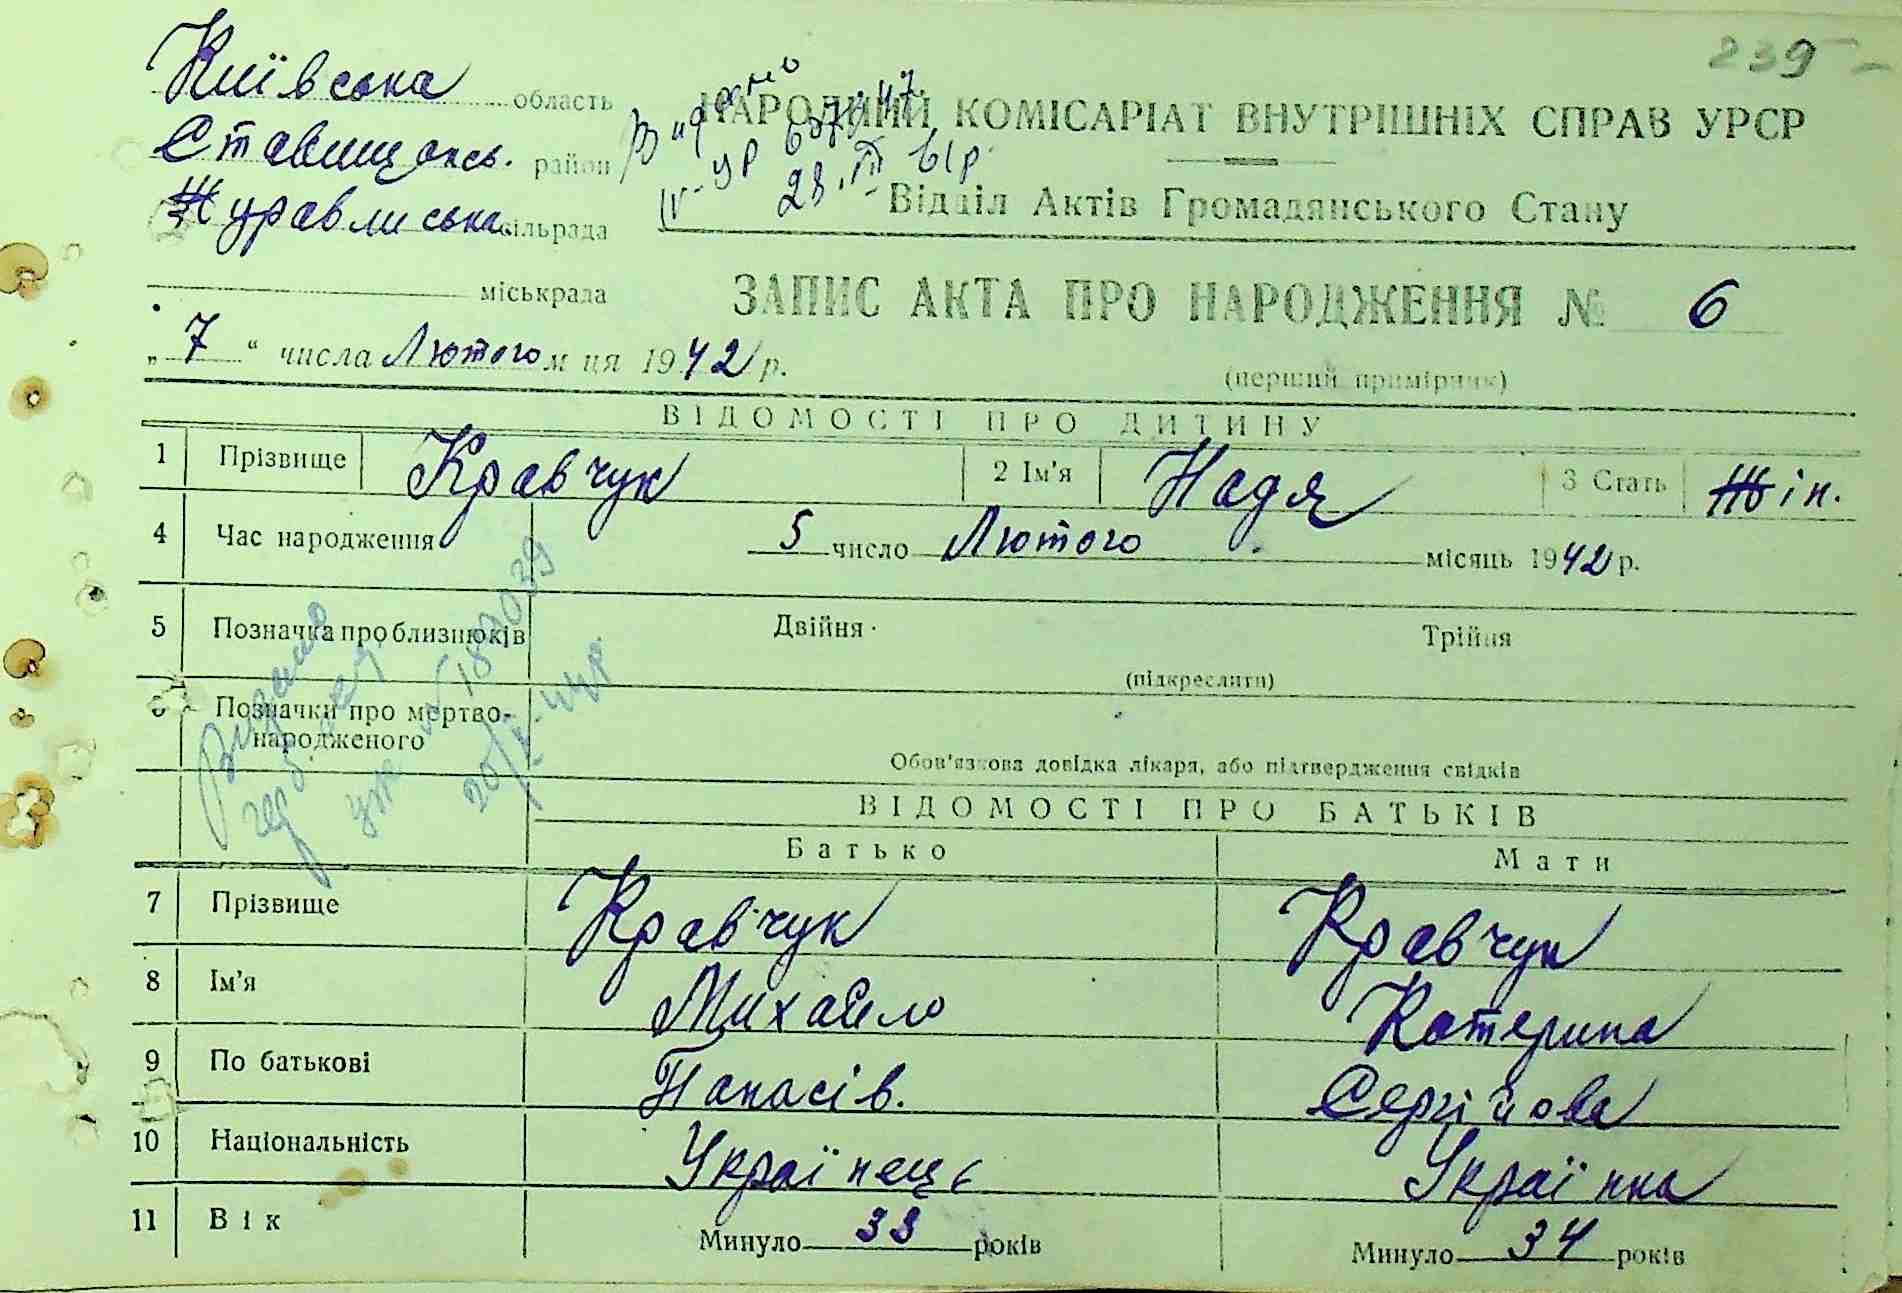 239
Київська область
НАРОДНИЙ КОМІСАРІАТ ВНУТРІШНІХ СПРАВ УРСР
Ставищансь. район
Видано
28.III
Відділ Актів Громадянського Стану
Журавлиська сільрада
міськрада
ЗАПИС АКТА ПРО НАРОДЖЕННЯ № 6
„7“ числа Лютого м ця 1942 р.
(перший примірник)
ВІДОМОСТІ ПРО ДИТИНУ
1 Прізвище Кравчук 2 Ім'я Надя 3 Стать Жін.
4 Час народження 5 число Лютого місяць 1942 р.
5 Позначка про близнюків Двійня Трійня
(підкреслити)
6 Позначки про мертво-
народженого
Обов'язкова довідка лікаря, або підтвердження свідків
Видано
ВІДОМОСТІ ПРО БАТЬКІВ
Батько Мати
7 Прізвище Кравчук Кравчук
8 Ім'я Михайло Катерина
9 По батькові Панасів. Сергійова
10 Національність Українець Українка
11 Вік Минуло 33 років Минуло 34 років